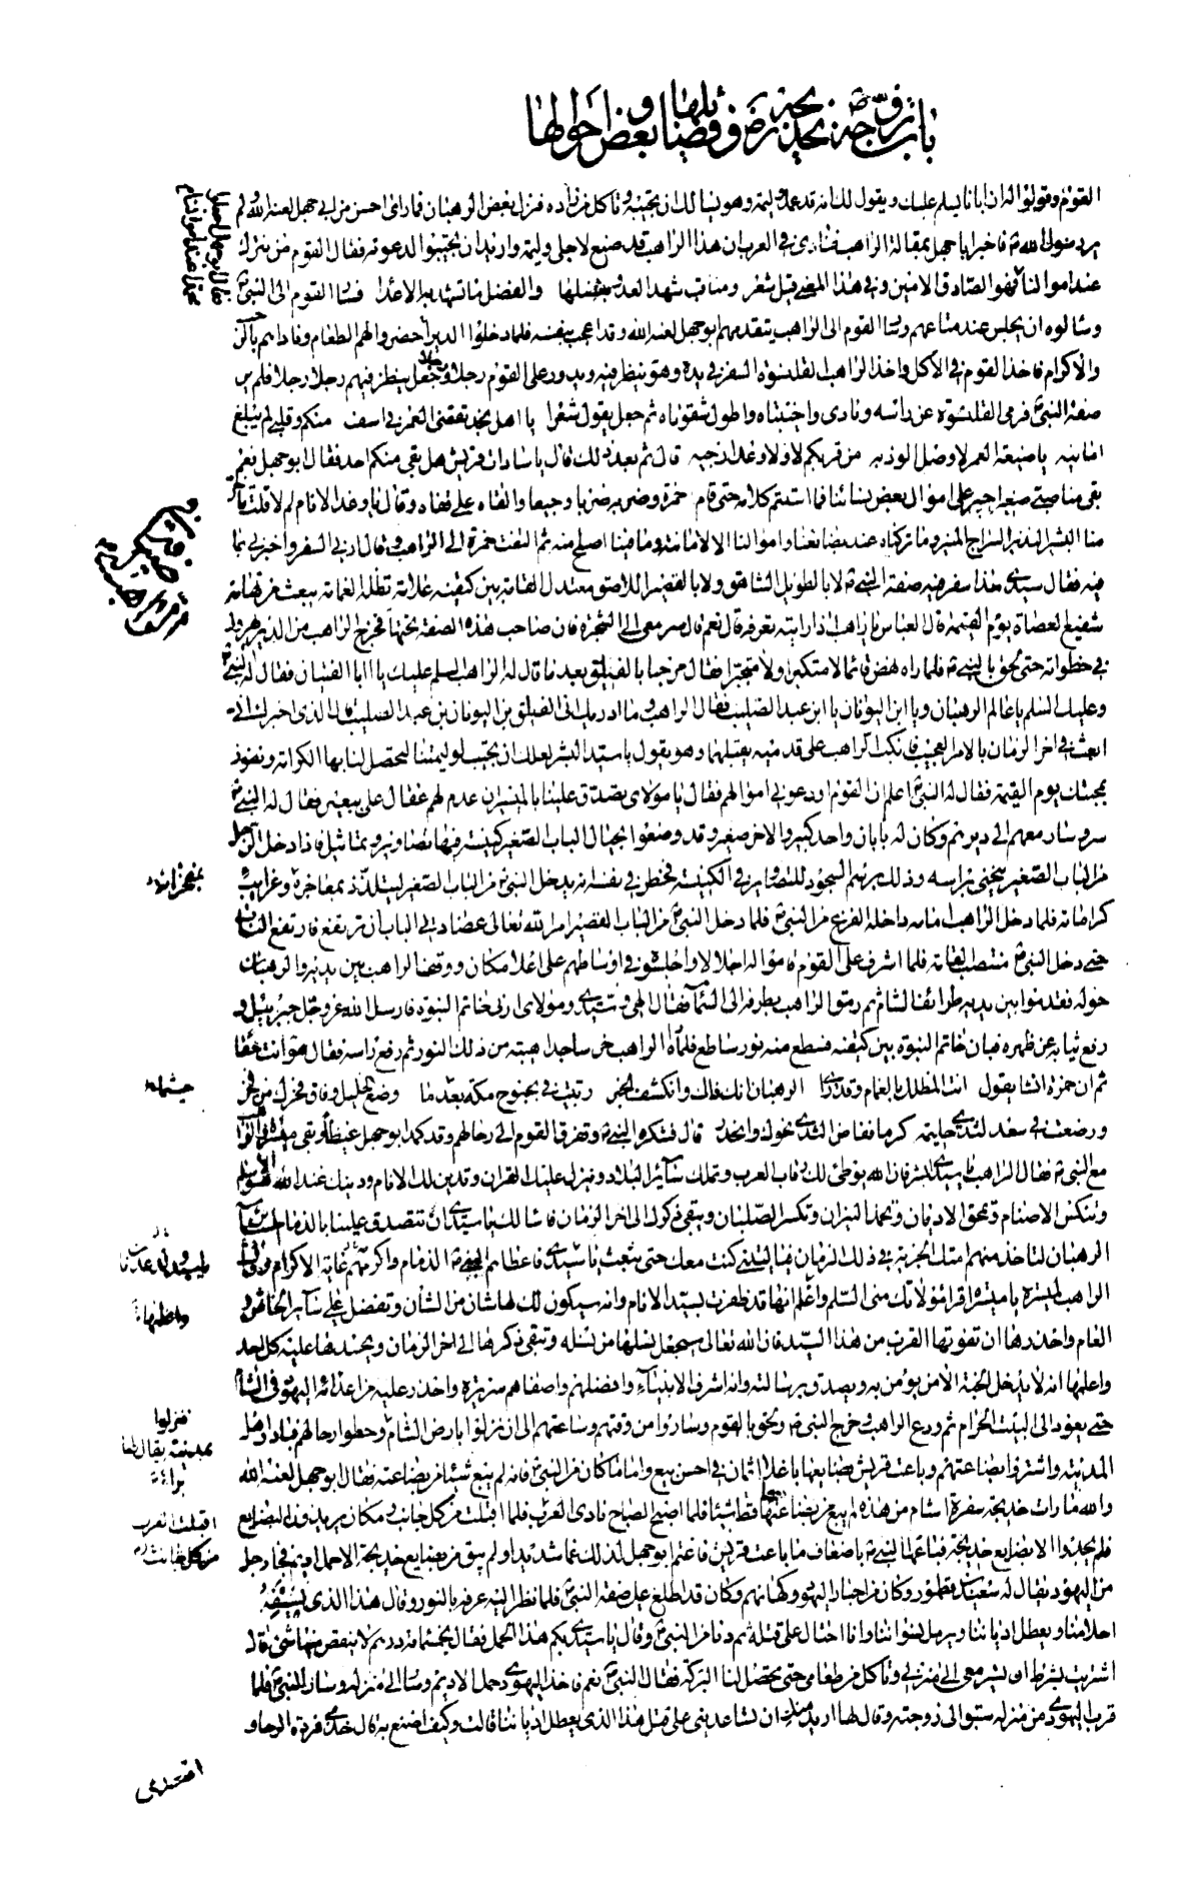 باب تزوجه بخديجة رض و فضائلها و بعض احوالها
القوم وقولوا له ان ابانا يسلم عليك ويقول لك انه قد عمل وليمة وهو يسالك ان تجيبه وتاكل من زاده فنزل بعض الرهبان فما راى احسن من ابي جهل لعنه الله ولم
ير رسول الله ص فاخبر ابا جهل بمقالة الراهب فنادى في العرب ان هذا الراهب قد صنع لاجلي وليمة واريد ان تجيبوا الدعوة فقال القوم من نترك
عند اموالنا فهو الصادق الامين وفي هذا المعنى قيل شعر ومناقب شهد العدو بفضلها والفضل ما تشهد به الاعداء فسار القوم الى النبي ص
وسالوه ان يجلس عند متاعهم وسار القوم الى الراهب يتقدمهم ابو جهل لعنه الله وقد اعجب بنفسه فلما دخلوا الدير احضروا لهم الطعام وناداهم بالرحب
والاكرام فاخذ القوم في الاكل واخذ الراهب القلنسوة السفر في يده وهو ينظر فيه ويدور على القوم رجلا رجلا وجعل ينظر فيهم رجلا رجلا فلم ير
صفة النبي ص فرمى القلنسوة عن راسه ونادى واخيبتاه واطول شقوتاه ثم جعل يقول شعرا يا اهل نجد تقضى العمر في اسف منكم وقلبي لم يبلغ
امانيه يا ضيعة العمر لا وصل الوذ به من قربكم لا ولا وعد ارجيه قال ثم بعد ذلك قال يا سادات قريش هل بقي منكم احد فقال ابو جهل نعم
بقي منا صبي صغير اجير على اموال بعض نسائنا فما استتم كلامه حتى قام حمزة وضربه ضربا وجيعا والقاه على قفاه وقال يا وغد الانام لم لا قلت تاخر
منا البشير النذير السراج المنير وما تركناه عند بضائعنا واموالنا الا لامانته وما فينا اصلح منه ثم التفت حمزة الى الراهب وقال ارني السفر واخبرني بما
فيه فقال سيدي هذا سفر فيه صفة النبي ص لا بالطويل الشاهق ولا بالقصير اللاصق معتدل القامة بين كتفيه علامة تظله الغمامة يبعث من تهامة
شفيع العصاة يوم القيمة قال العباس يا راهب اذا رايته تعرفه قال نعم قال سر معي الى الشجرة فان صاحب هذه الصفة تحتها فخرج الراهب من الدير يهرول
في خطواته حتى لحق بالنبي ص فلما راه نهض قائما لا متكبرا ولا متجبرا فقال مرحبا بالفيلق بعد ما قال له الراهب السلم عليك يا ابا الفتيان فقال له النبي ص
وعليك السلم يا عالم الرهبان ويا ابن اليونان يا ابن عبد الصليب فقال الراهب وما ادريك اني الفيلق بن اليونان بن عبد الصليب قال الذي اخبرك اني
ابعث في اخر الزمان بالامر العجيب فانكب الراهب على قدميه يقبلهما وهو يقول يا سيد البشر لعلك ان تجيب لوليمتنا ليحصل لنا بها الكرامة ونفوز
بمحبتك يوم القيمة فقال له النبي ص اعلم ان القوم اودعوني اموالهم فقال يا مولاي تصدق علينا بالمسير ان عدم لهم عقال علي ببعير فقال له النبي ص
سر وسار معهم الى ديرهم وكان له بابان واحد كبير والاخر صغير وقد وضعوا بحيال الباب الصغير كنيسة فيها تصاوير وتماثيل فاذا دخل الرجل
من الباب الصغير ينحني براسه وذلك برسم السجود للتصاوير في الكنيسة فخطر في نفسه انه يدخل النبي ص من الباب الصغير ليتلذذ بمفاخره وغرايب
كراماته فلما دخل الراهب امامه داخله الفزع من النبي ص فلما دخل النبي ص من الباب القصير امر الله تعالى عضادتي الباب ان ترتفع فارتفع الباب
حتى دخل النبي ص منتصب القامة فلما اشرف على القوم قاموا له اجلالا واجلسوه في اوساطهم على اعلا مكان ووقف الراهب بين يديه والرهبان
حوله فقدموا بين يديه طرائف الشام ثم رمق الراهب بطرفه الى السماء فقال الهي وسيدي ومولاي ارني خاتم النبوة فارسل الله عز وجل جبرئيل و
رفع ثيابه عن ظهره فبان خاتم النبوة بين كتفيه فسطع منه نور ساطع فلما راه الراهب خر ساجدا هيبة من ذلك النور ثم رفع راسه فقال هو انت حقا
ثم ان حمزة انشا يقول انت المظلل بالغمام وقد راى الرهبان انك ذاك وانكشف الخبر
ورضعت في سعد لثدي حليمة كرما ففاض الثدي نحوك وانحدر قال فشكره النبي ص وتفرق القوم الى رحالهم وقد كمد ابو جهل غيظا وبقي ميسرة والراهب
مع النبي ص فقال الراهب يا سيدي ابشر فان الله يوطئ لك رقاب العرب وتملك ساير البلاد وينزل عليك القران وتدين لك الانام ودينك عند الله هو الاسلام
وتنكس الاصنام وتمحق الاديان وتخمد النيران وتكسر الصلبان ويبقى ذكرك الى اخر الزمان فاسالك يا سيدي ان تتصدق علينا بالذمام لساير
الرهبان لتاخذ منهم امتك الجزية في ذلك الزمان فيا ليتني كنت معك حتى تبعث يا سيدي فاعطاهم النبي ص الذمام واكرمهم غاية الاكرام وقال
الراهب لميسرة يا ميسرة اقرا مولاتك مني السلم واعلم انها قد ظفرت بسيد الانام وانه سيكون لك لها شان من الشان وتفضل على ساير الخاص و
العام واحذرها ان تفوتها القرب من هذا السيد فان الله تعالى سيجعل نسلها من نسله وتبقى ذكرها الى اخر الزمان ويحسدها عليه كل احد
واعلمها انه لا يدخل الجنة الا من يؤمن به ويصدق برسالته وانه اشرف الانبياء وافضلهم واصفاهم سريرة واحذر عليه من اعدائه اليهود في الشام
حتى يعود الى البيت الحرام ثم ودع الراهب وخرج النبي ص ولحق بالقوم وساروا من وقتهم وساعتهم الى ان نزلوا بارض الشام وحطوا رحالهم فبادر اهل
المدينة واشتروا بضاعتهم وباعت قريش بضايعها باغلا اثمان في احسن بيع واما ما كان من النبي ص فانه لم يبع شيئا من بضاعته فقال ابو جهل لعنه الله
والله ما رات خديجة سفرة اشام من هذه لم يبع من بضاعتها قط شيئا فلما اصبح الصباح نادى العرب فلما اقبلت من كل جانب ومكان يريدون البضايع
فلم يجدوا الا بضايع خديجة فباعها النبي ص باضعاف ما باعت قريش فاغتم ابو جهل لذلك غما شديدا ولم يبق من بضايع خديجة الا حمل اديم فجاء رجل
من اليهود يقال له سعيد بن قطمور وكان من احبار اليهود وكهانهم وكان قد اطلع على صفة النبي ص فلما نظر اليه عرفه بالنور وقال هذا الذي يسفه
احلامنا ويعطل ادياننا ويرمل نسواننا وانا احتال على قتله ثم دنا من النبي ص وقال يا سيدي بكم هذا الحمل فقال بخمسمائة درهم لا ينقص منها شئ قال
اشتريت بشرط ان تسير معي الى منزلي وتاكل من طعامي حتى تحصل لنا البركة فقال النبي ص نعم فاخذ اليهودي حمل الاديم وسار الى منزله وسار النبي ص فلما
قرب اليهودي من منزله سبق الى زوجته وقال لها اريد منك ان تساعديني على قتل هذا الذي يعطل ادياننا قالت وكيف اصنع به قال خذي فردة الرحا و
فنزلوا
بمدينة يقال لها
اقبلت العرب
من كل جانب
اقعدي